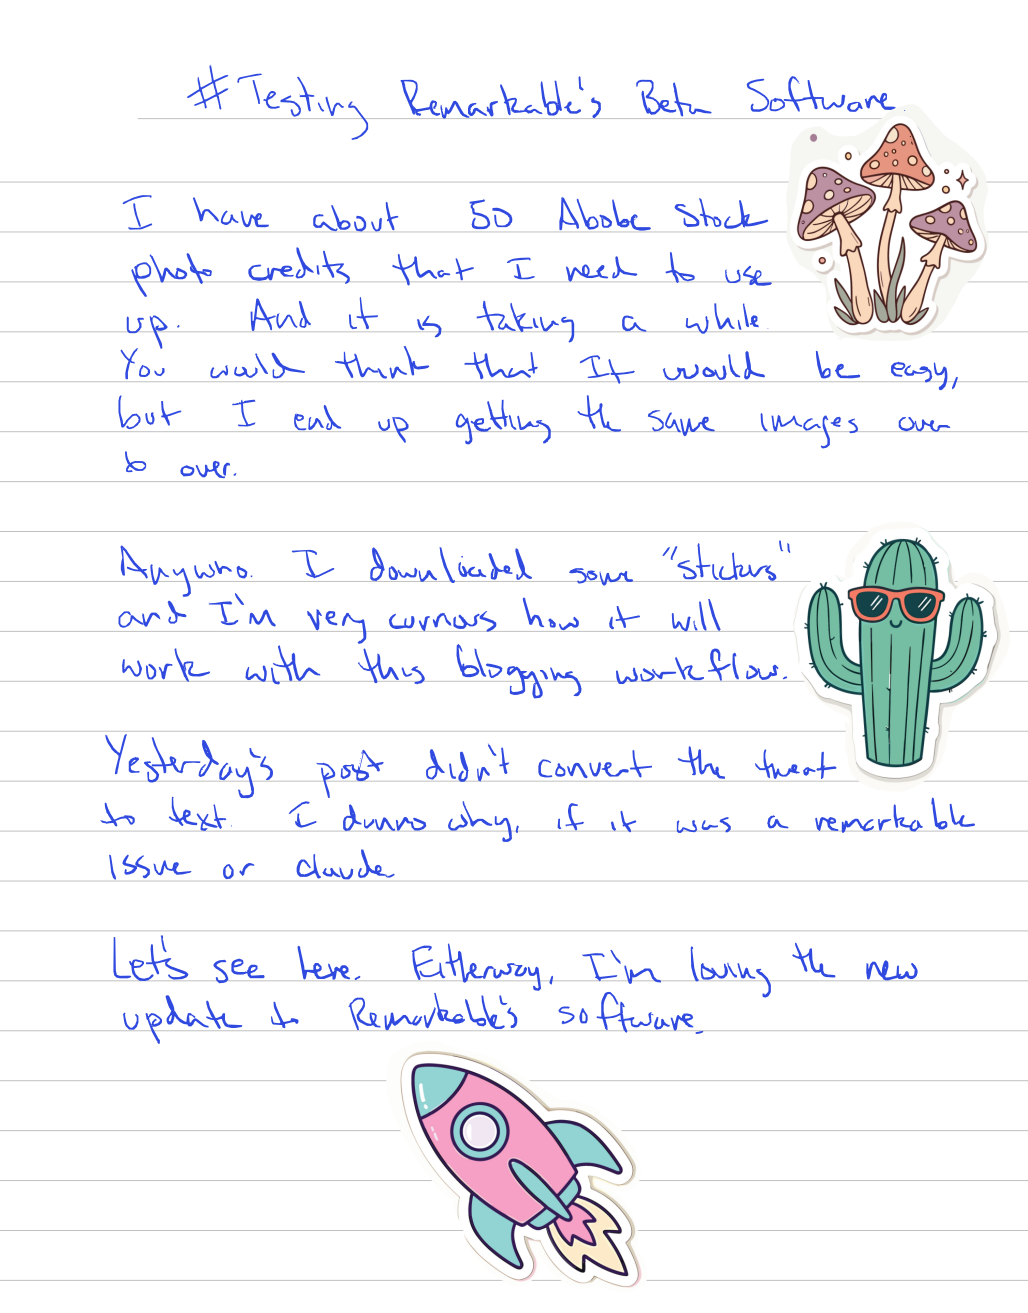 #Testing Remarkable's Beta Software.
I have about 50 Abobe Stock
photo credits that I need to use
up. And it is taking a while.
You would think that It would be easy,
but I end up getting the same images over
to over.
Anywho. I downloaded some "stickers"
and I'm very curious how it will
work with this blogging workflow.
Yesterday's post didn't convert the
to text. I dunno why, if it was a remarkable
issue or claude
Let's see here. Eitherway, I'm loving the new
update to Remarkable's software.